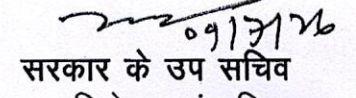 09/7/26
सरकार के उप सचिव